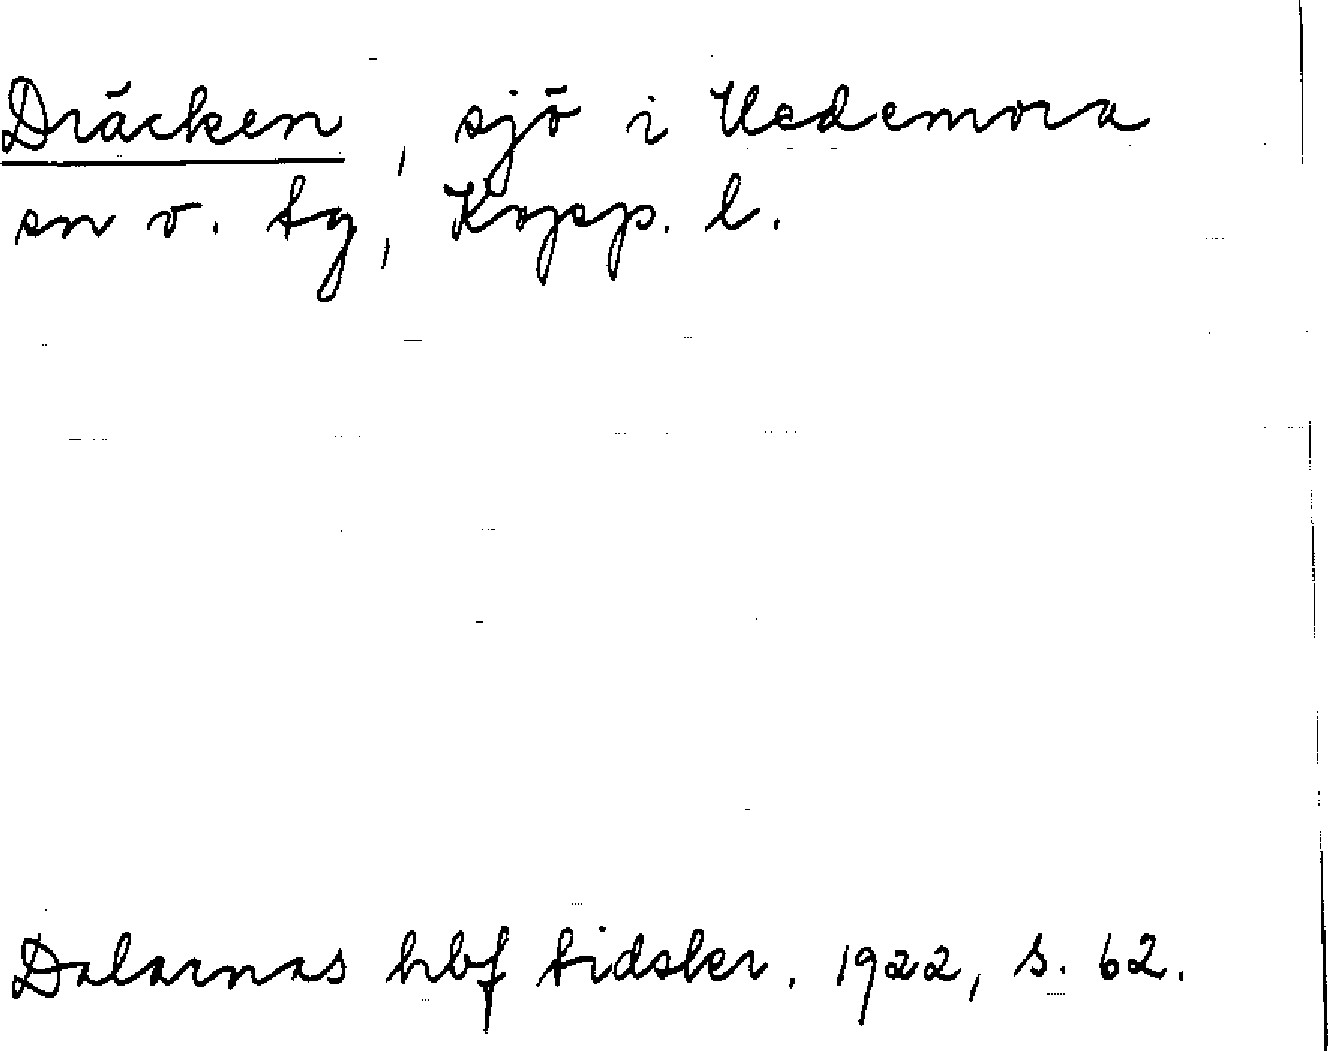 Dräcken, sjö i Hedemora
sn o. tg, Kopp. l.
Dalarnas hbf tidskr. 1922, s. 62.